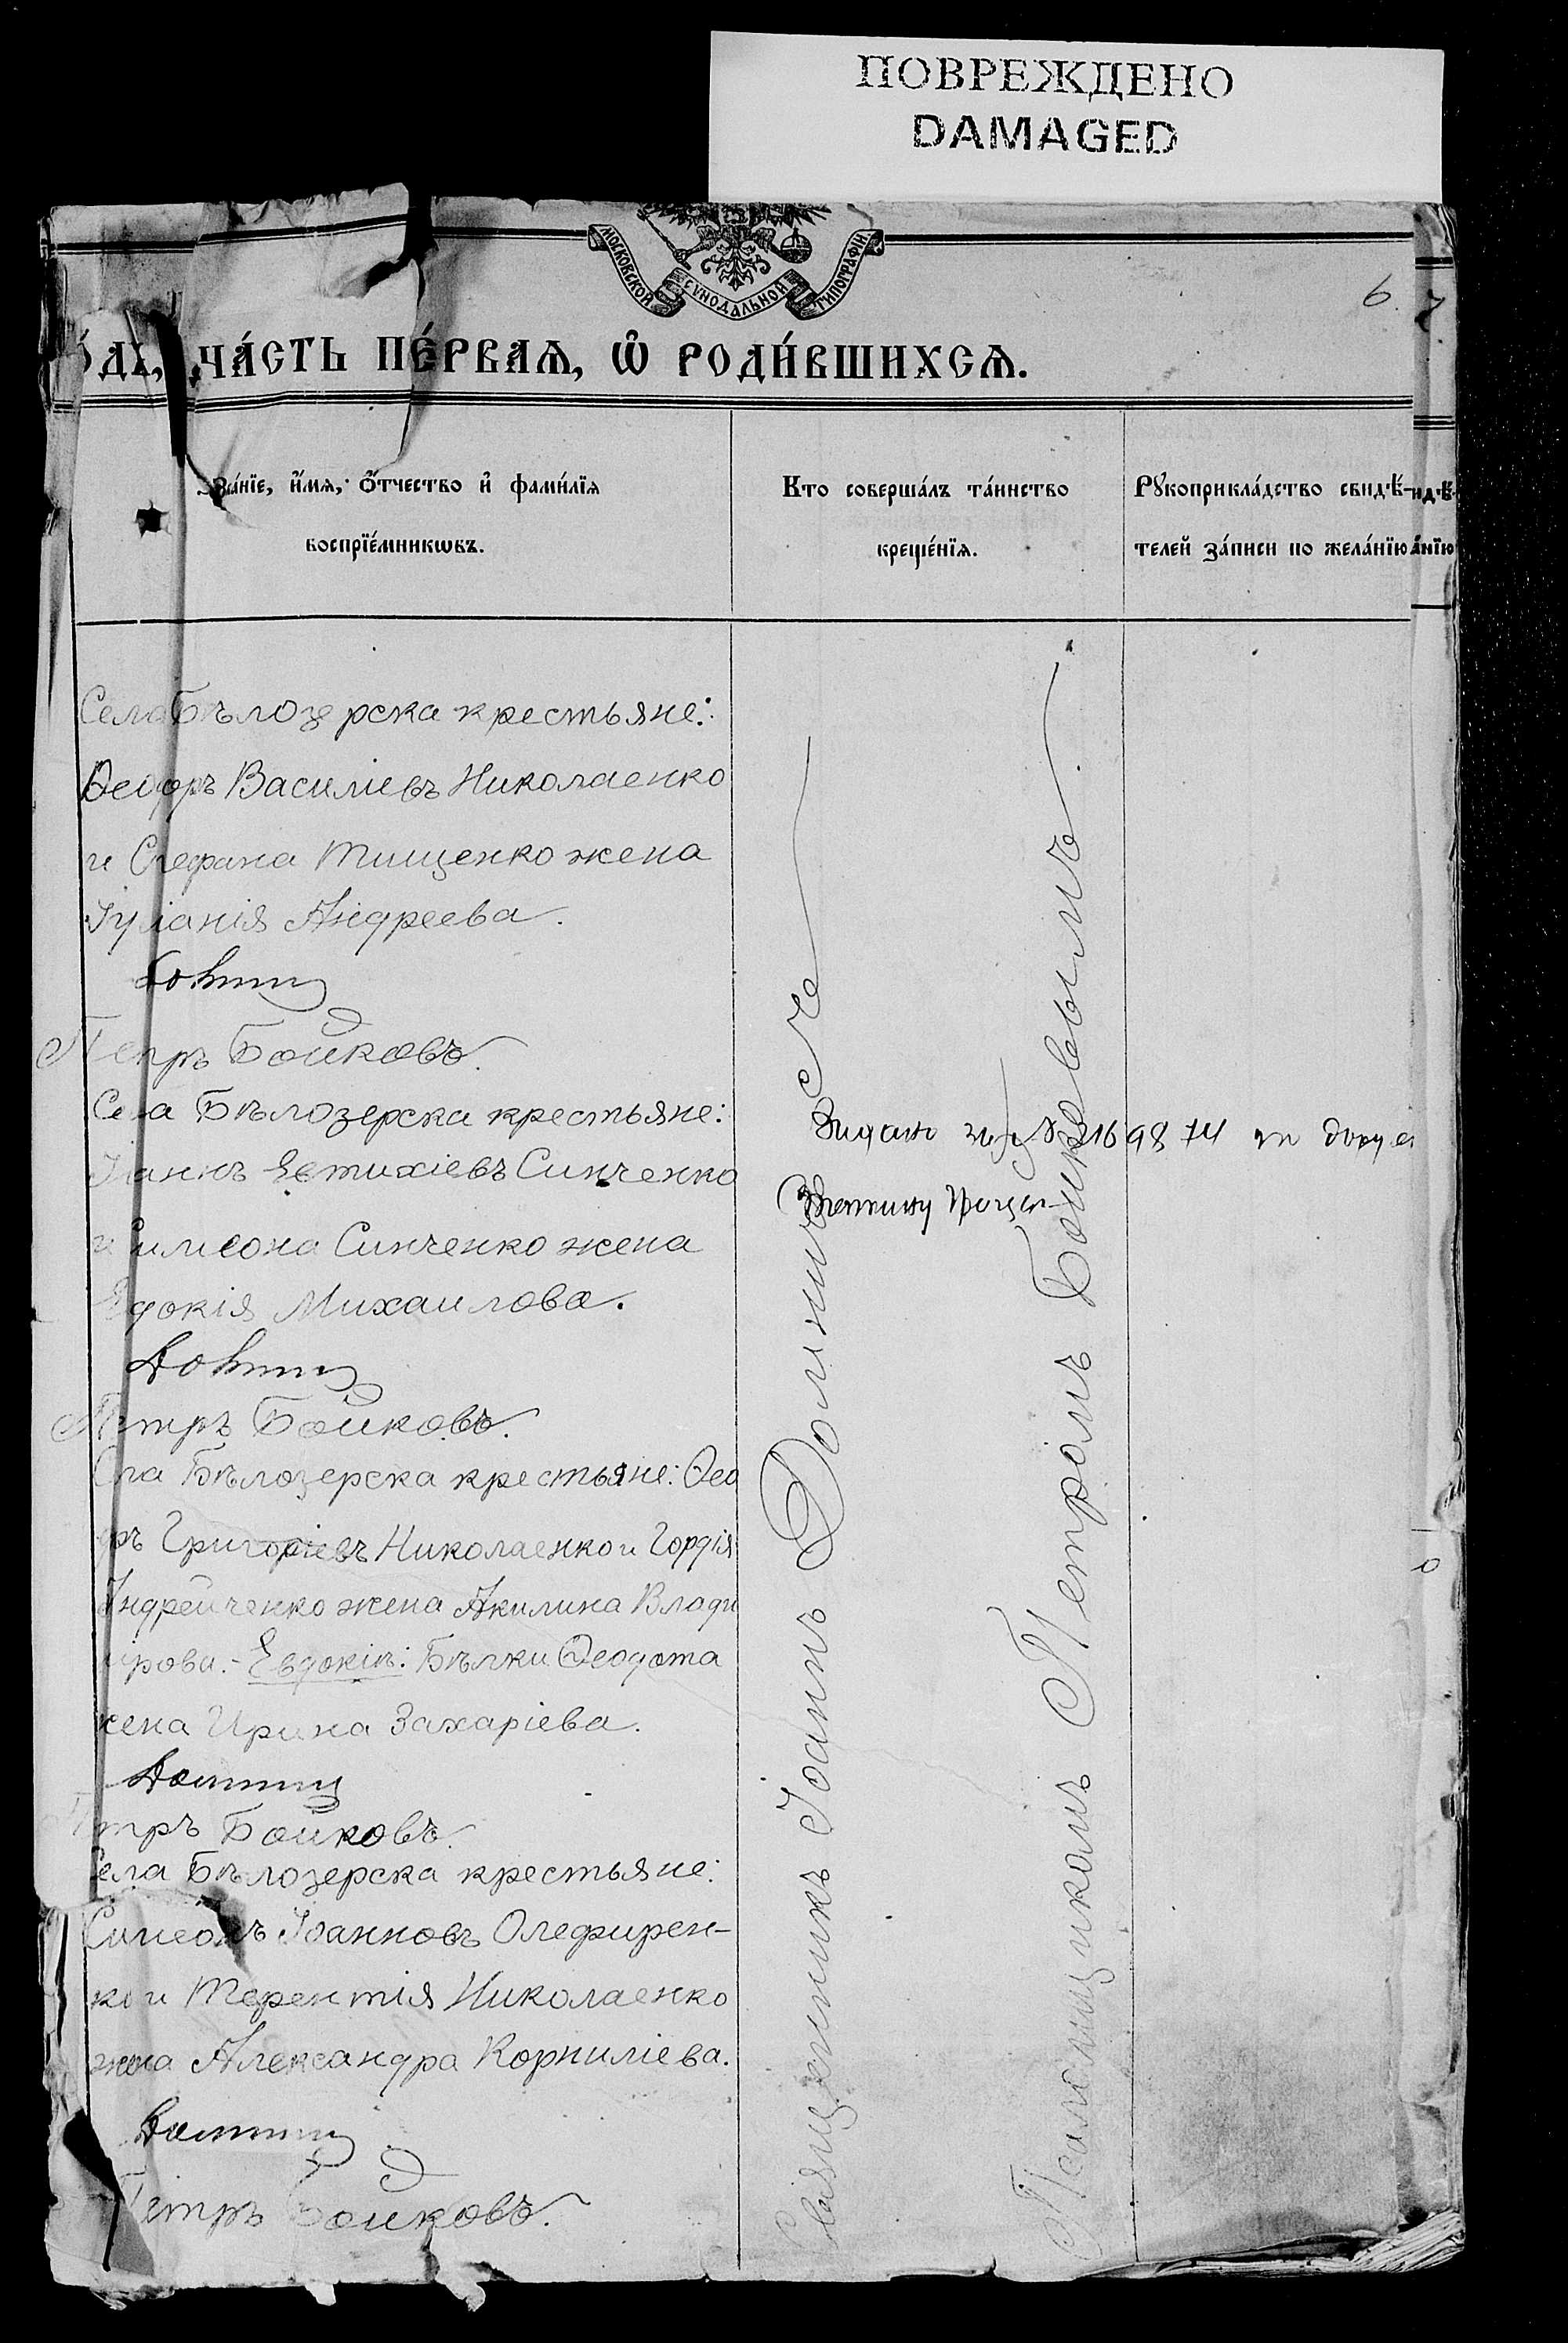 ПОВРЕЖДЕНО
DAMAGED
МОСКОВСКОЙ СѴНОДАЛЬНОЙ ТИПОГРАФІИ
6
ЧА́СТЬ ПЕ́РВАѦ, Ѡ РОДИ́ВШИХСѦ.
зва́нїе, и҆́мѧ, ѻ҆́тчество и҆ фами́лїѧ
воспрїе́мникѡвъ.
Кто соверша́лъ та́инство
креще́нїѧ.
Рꙋкоприкла́дство свидѣ́-
телей за́писи по жела́нїю
Села Бѣлозерска крестьяне:
Ѳеодоръ Василіевъ Николаенко
и Стефана Тищенко жена
Іуліанія Андреева.
Петръ Бойковъ.
Села Бѣлозерска крестьяне:
Іоаннъ Евтихіевъ Синченко
и Симеона Синченко жена
Евдокія Михаилова.
Петръ Бойковъ.
Села Бѣлозерска крестьяне: Ѳео
доръ Григоріевъ Николаенко и Гордія
Андрейченко жена Акилина Влади
мірова.- Евдокіи: Бѣлки Ѳеодота
жена Ирина Захаріева.
Петръ Бойковъ.
Села Бѣлозерска крестьяне:
Симеонъ Іоанновъ Олефирен-
ко и Терентія Николаенко
жена Александра Корниліева.
Петръ Бойковъ.
Священникъ Іоаннъ
Псаломщикомъ Петромъ Бойковымъ.